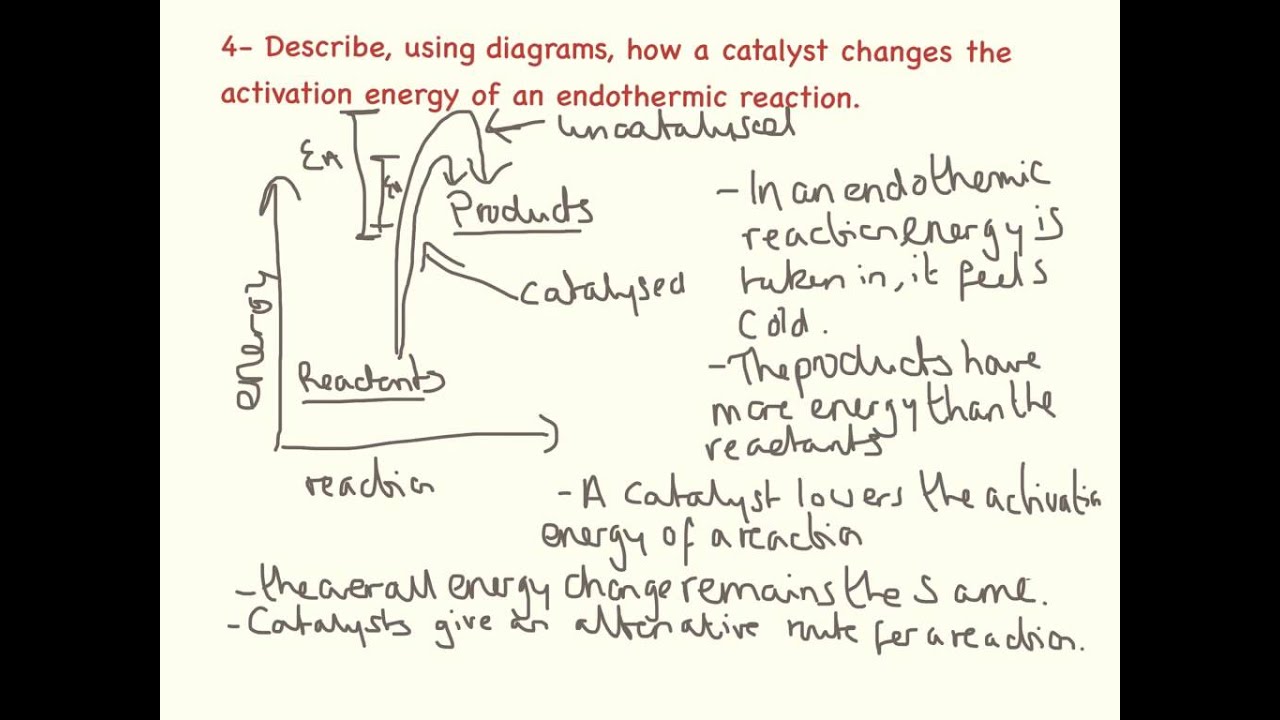 4- Describe, using diagrams, how a catalyst changes the
activation energy of an endothermic reaction.
uncatalysed
EA
EA
Products
- In an endothermic
reaction energy is
taken in, it feels
cold.
catalysed
energy
Reactants
- The products have
more energy than the
reactants
reaction
- A catalyst lowers the activation
energy of a reaction
- the overall energy change remains the same.
- Catalysts give an alternative route for a reaction.